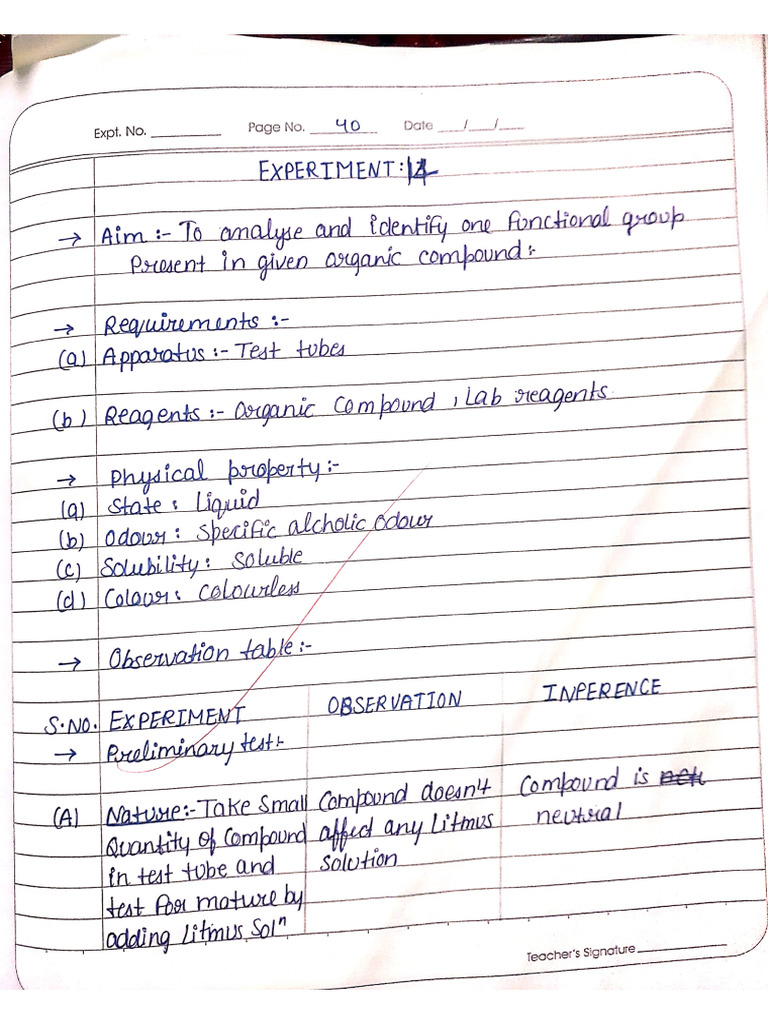 Expt. No. Page No. 40 Date / /
EXPERIMENT: 14
→ Aim :- To analyse and identify one functional group
Present in given organic compound:-
→ Requirements :-
(a) Apparatus :- Test tubes
(b) Reagents :- Organic Compound, Lab reagents
→ Physical property:-
(a) State : liquid
(b) Odour : Specific alcholic odour
(c) Solubility : Soluble
(d) Colour : Colourless
→ Observation table:-
S.NO. EXPERIMENT OBSERVATION INPERENCE
→ Preliminary test:-
(A) Nature:- Take Small Compound doesn't Compound is
Quantity of Compound affect any Litmus neutral
in test tube and Solution
test for mature by
adding litmus Solⁿ
Teacher's Signature